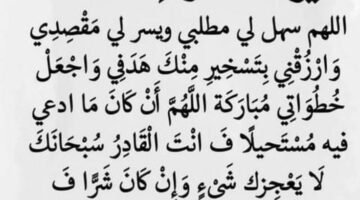 اللهم سهل لي مطلبي ويسر لي مَقْصِدِي
وَارْزُقْنِي بِتَسْخِيرِ مِنْكَ هَدَفِي وَاجْعَلْ
خُطُوَاتِي مُبَارَكَة اللَّهُمَّ أَنْ كَانَ مَا ادعي
فيه مُسْتَحيلًا فَ انْتَ الْقَادِرُ سُبْحَانَكَ
لَا يَعْجِزكَ شَيْءٍ وَإِنْ كَانَ شَرًّا فَ